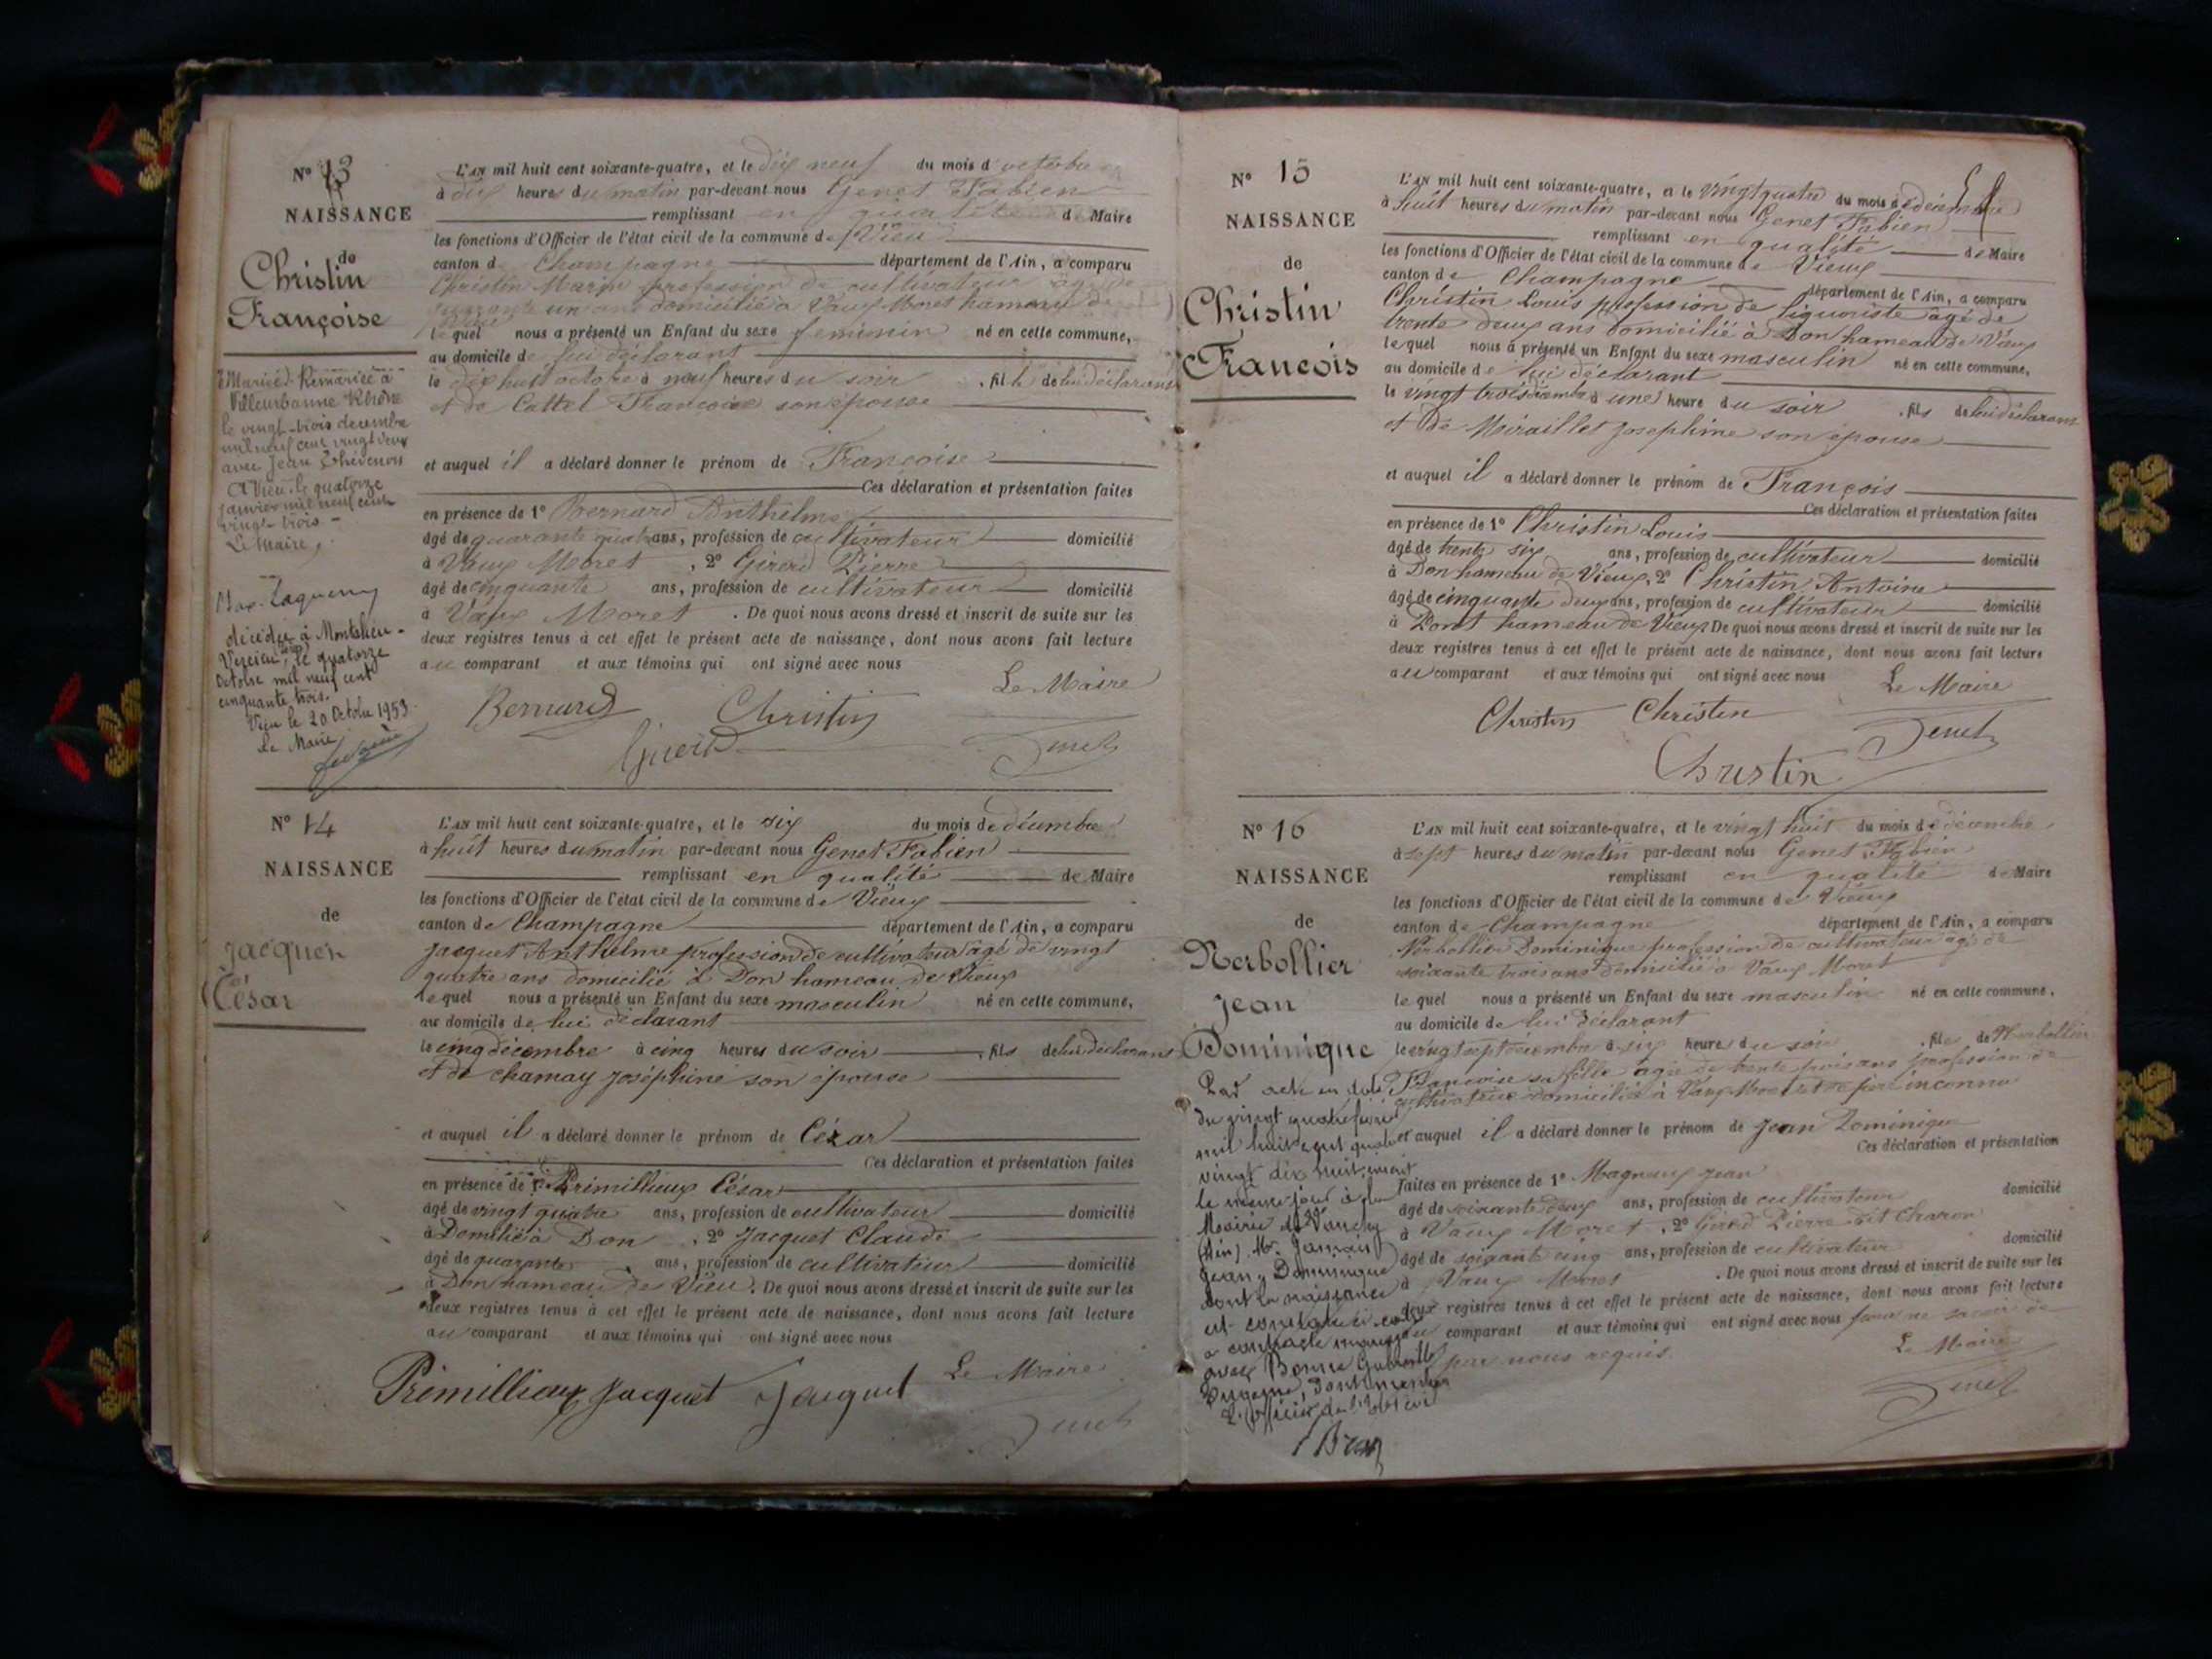 N° 13
NAISSANCE
de
Christin
Françoise
Mariée Remariée à
Villeurbanne Rhône
le vingt-trois décembre
mil neuf cent vingt deux
avec Jean Thévenon
A Vieu le quatorze
janvier mil neuf cent
vingt-trois -
Le Maire,
décédée à Montalieu-
Vercieu, le quatorze
Octobre mil neuf cent
cinquante trois.
Vieu le 20 Octobre 1953.
Le Maire
L'AN mil huit cent soixante-quatre, et le dix neuf du mois d'octobre
à dix heures du matin par-devant nous Genet Fabien
remplissant en qualité de Maire
les fonctions d'Officier de l'état civil de la commune de Vieu
canton de Champagne département de l'Ain, a comparu
Christin Marin profession de cultivateur âgé de
quarante un ans domicilié à Vaux-Moret hameau de
lequel nous a présenté un Enfant du sexe feminin né en cette commune,
au domicile de lui déclarant
le dix huit octobre à neuf heures du soir , fille de lui déclarant
et de Cattel Françoise son épouse
et auquel il a déclaré donner le prénom de Françoise
Ces déclaration et présentation faites
en présence de 1° Bernard Anthelme
âgé de quarante quatre ans, profession de cultivateur domicilié
à Vaux Moret , 2° Girerd Pierre
âgé de cinquante ans, profession de cultivateur domicilié
à Vaux Moret . De quoi nous avons dressé et inscrit de suite sur les
deux registres tenus à cet effet le présent acte de naissance, dont nous avons fait lecture
au comparant et aux témoins qui ont signé avec nous
Le Maire
Bernard Christin
Girerd Genet
N° 14
NAISSANCE
de
Jacquet
César
L'AN mil huit cent soixante-quatre, et le six du mois de décembre
à huit heures du matin par-devant nous Genet Fabien
remplissant en qualité de Maire
les fonctions d'Officier de l'état civil de la commune de Vieux
canton de Champagne département de l'Ain, a comparu
Jacquet Anthelme profession de cultivateur âgé de vingt
quatre ans domicilié à Don hameau de Vieux
lequel nous a présenté un Enfant du sexe masculin né en cette commune,
au domicile de lui déclarant
le cinq décembre à cinq heures du soir , fils de lui déclarant
et de chamay Joséphine son épouse
et auquel il a déclaré donner le prénom de Cézar
Ces déclaration et présentation faites
en présence de 1° Primillieux César
âgé de vingt quatre ans, profession de cultivateur domicilié
à Domicilié à Don , 2° Jacquet Claude
âgé de quarante ans, profession de cultivateur domicilié
à Don hameau de Vieu. De quoi nous avons dressé et inscrit de suite sur les
deux registres tenus à cet effet le présent acte de naissance, dont nous avons fait lecture
au comparant et aux témoins qui ont signé avec nous
Le Maire
Primillieux Jacquet Jacquet
Genet
N° 15
NAISSANCE
de
Christin
Francois
L'AN mil huit cent soixante-quatre, et le vingt quatre du mois de décembre
à huit heures du matin par-devant nous Genet Fabien
remplissant en qualité de Maire
les fonctions d'Officier de l'état civil de la commune de Vieux
canton de Champagne département de l'Ain, a comparu
Christin Louis profession de liquoriste âgé de
trente deux ans domicilié à Don hameau de Vieux
lequel nous a présenté un Enfant du sexe masculin né en cette commune,
au domicile de lui déclarant
le vingt trois décembre à une heure du soir , fils de lui déclarant
et de Miraillet Josephine son épouse
et auquel il a déclaré donner le prénom de François
Ces déclaration et présentation faites
en présence de 1° Christin Louis
âgé de trente six ans, profession de cultivateur domicilié
à Don hameau de Vieux, 2° Christin Antoine
âgé de cinquante deux ans, profession de cultivateur domicilié
à Dont hameau de Vieux De quoi nous avons dressé et inscrit de suite sur les
deux registres tenus à cet effet le présent acte de naissance, dont nous avons fait lecture
au comparant et aux témoins qui ont signé avec nous
Le Maire
Christin Christin
Genet
Christin
N° 16
NAISSANCE
de
Nerbollier
Jean
Dominique
Par acte en date
du vingt quatre
mil huit cent quatre
vingt dix huit
le même jour à la
Mairie de
(Ain) Mr.
Jean Dominique
dont la naissance
est constatée ci-contre
a contracté mariage
avec
L'officier de l'état civil
L'AN mil huit cent soixante-quatre, et le vingt huit du mois de décembre
à sept heures du matin par-devant nous Genet Fabien
remplissant en qualité de Maire
les fonctions d'Officier de l'état civil de la commune de Vieux
canton de Champagne département de l'Ain, a comparu
Nerbollier Dominique profession de cultivateur âgé de
soixante trois ans domicilié à Vaux Moret
lequel nous a présenté un Enfant du sexe masculin né en cette commune,
au domicile de lui déclarant
le vingt sept décembre à six heures du soir , fils de Nerbollier
Françoise sa fille âgée de trente trois ans profession de
cultivatrice domiciliée à Vaux-Moret et de père inconnu
et auquel il a déclaré donner le prénom de Jean Dominique
Ces déclaration et présentation
faites en présence de 1° Magneux Jean
âgé de soixante deux ans, profession de cultivateur domicilié
à Vaux Moret , 2° Girerd Pierre dit Charon
âgé de soixante cinq ans, profession de cultivateur domicilié
à Vaux Moret . De quoi nous avons dressé et inscrit de suite sur les
deux registres tenus à cet effet le présent acte de naissance, dont nous avons fait lecture
au comparant et aux témoins qui ont signé avec nous pour ne savoir de
par nous requis.
Le Maire
Genet